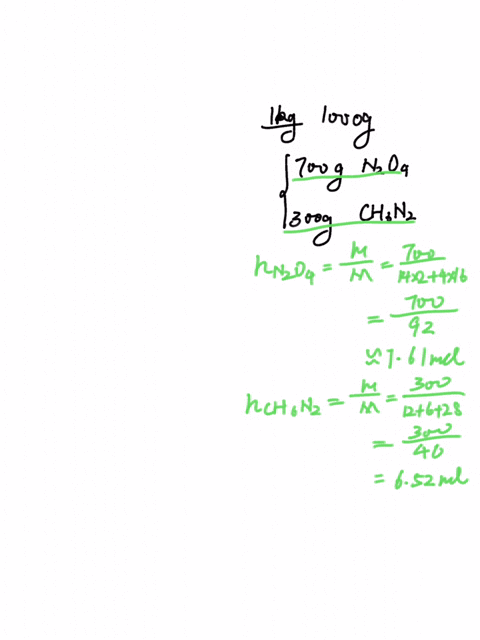 1kg 1000g
700g N₂O₄
300g CH₆N₂
n N₂O₄ = m/M = 700/14×2+4×16
= 700/92
≈ 7.61 mol
n CH₆N₂ = m/M = 300/12+6+28
= 300/46
= 6.52 mol